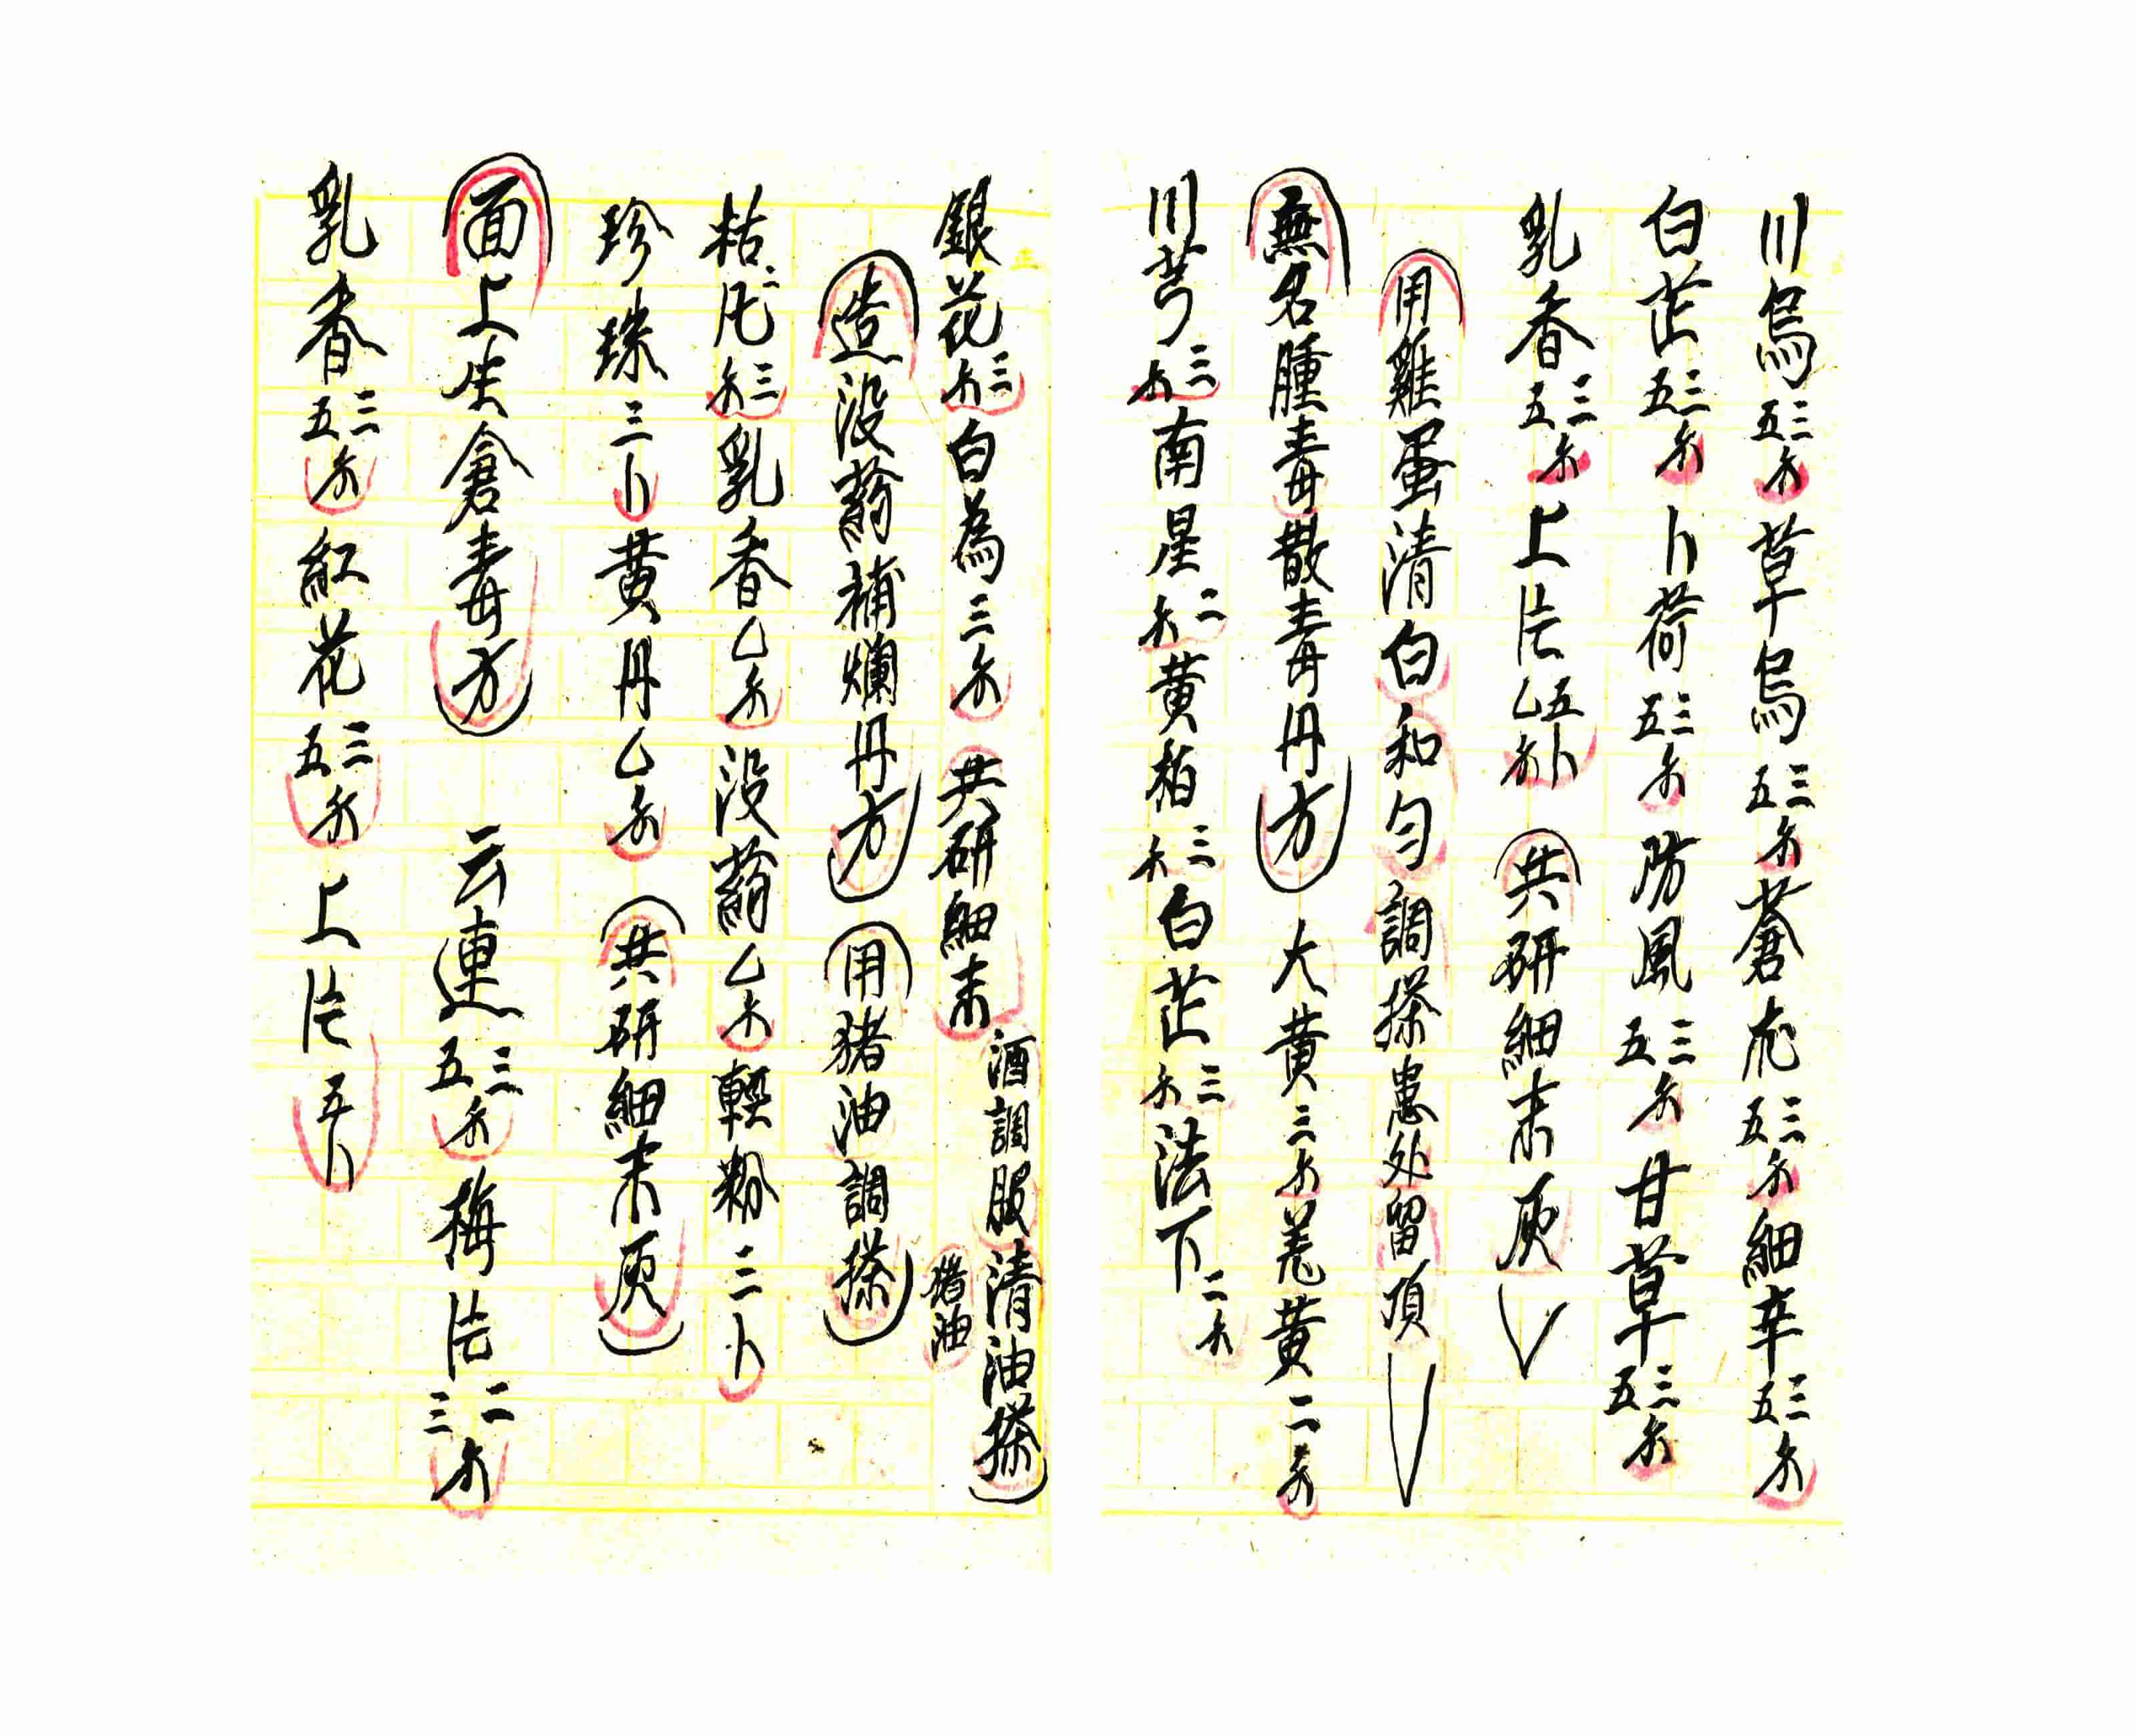 川烏三五钱草烏三五钱蒼朮三五钱細辛三五钱
白芷三五钱卜荷三五钱防風三五钱甘草三五钱
乳香三五钱上片五卜乙钱共研細末
用雞蛋清白和匀調搽患处留頂
無名腫毒散毒丹方大黃三钱羗黃二钱
川芎三钱南星二钱黃栢三钱白芷三钱法下二钱
銀花三钱白為三钱共研細末酒調服清油搽
猪油
造没藥補爛丹方用猪油調搽
枯凡三钱乳香乙钱没藥乙钱輕粉三卜
珍珠三卜黃丹乙钱共研細末
面上生倉毒方云連三五钱梅片二三钱
乳香三五钱紅花三五钱上片五卜